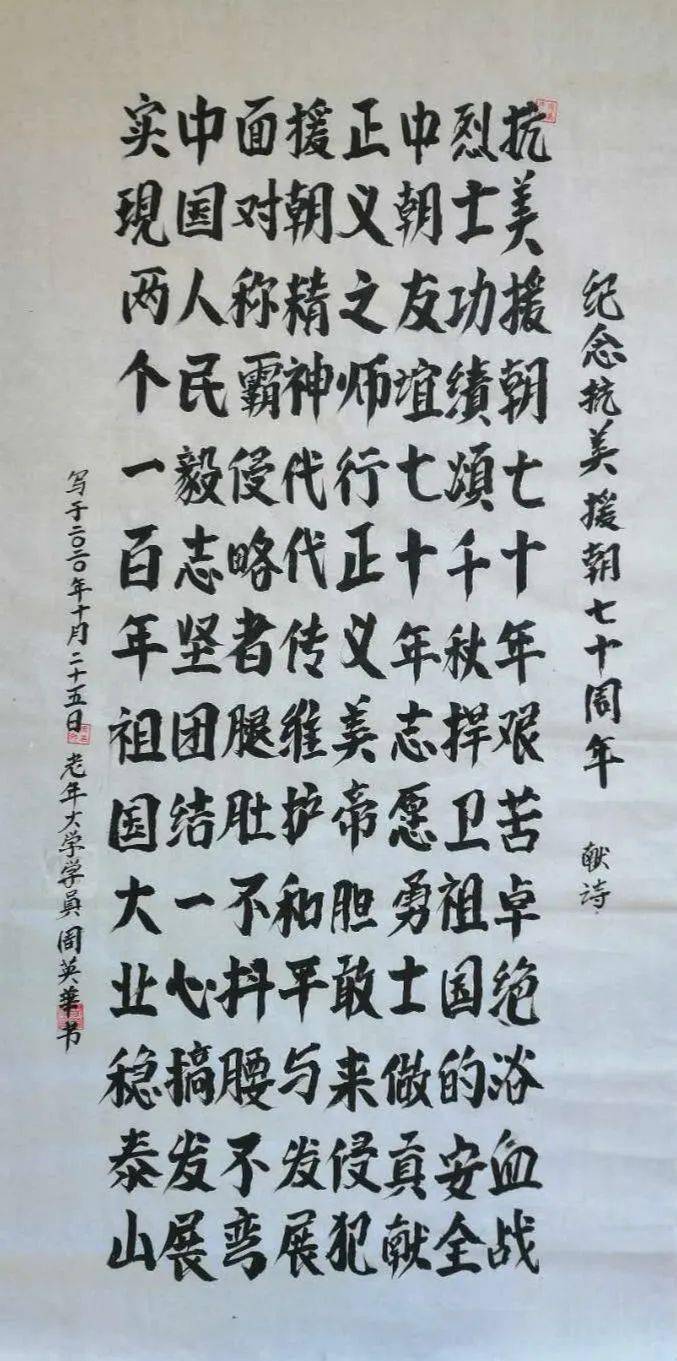 纪念抗美援朝七十周年 献诗
抗美援朝七十年艰苦卓绝浴血战
烈士功績頌千秋捍卫祖国的安全
中朝友谊七十年志愿勇士做貢献
正义之师行正义美帝胆敢来侵犯
援朝精神代代传维护和平与发展
面对称霸侵略者腿肚不抖腰不弯
中国人民毅志坚团结一心搞发展
实現两个一百年祖国大业稳泰山
写于二〇二〇年十月二十五日 老年大学学員周英華书